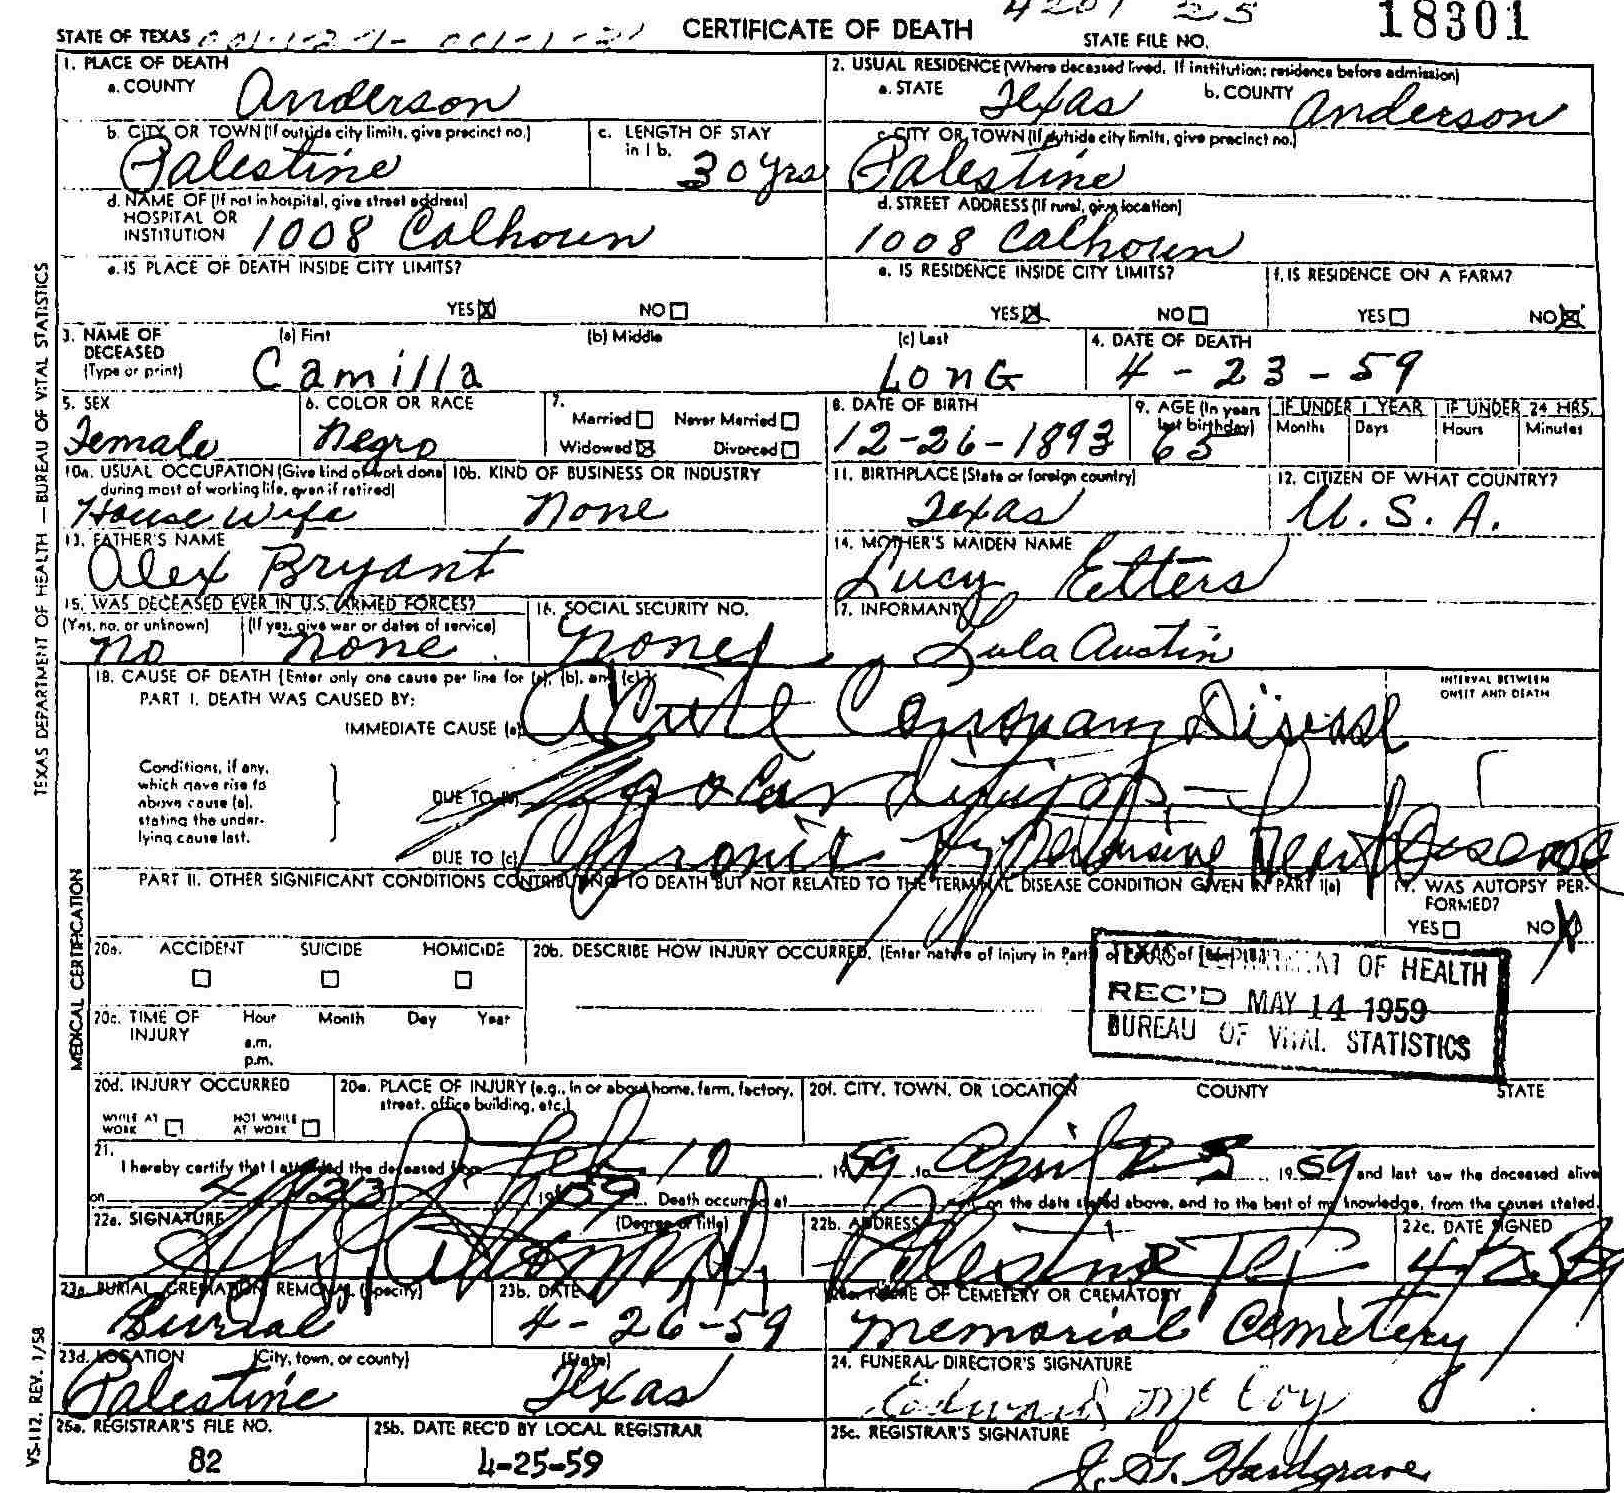 CERTIFICATE OF DEATH
18301
STATE OF TEXAS
STATE FILE NO.
1. PLACE OF DEATH
a. COUNTY Anderson
2. USUAL RESIDENCE (Where deceased lived. If institution: residence before admission)
a. STATE Texas b. COUNTY Anderson
b. CITY OR TOWN (If outside city limits, give precinct no.) Palestine
c. LENGTH OF STAY in 1b. 30 yrs
c. CITY OR TOWN (If outside city limits, give precinct no.) Palestine
d. NAME OF (If not in hospital, give street address) HOSPITAL OR INSTITUTION 1008 Calhoun
d. STREET ADDRESS (If rural, give location) 1008 Calhoun
e. IS PLACE OF DEATH INSIDE CITY LIMITS?
YES ☒ NO ☐
e. IS RESIDENCE INSIDE CITY LIMITS?
YES ☒ NO ☐
f. IS RESIDENCE ON A FARM?
YES ☐ NO ☒
3. NAME OF DECEASED (Type or print)
(a) First Camilla
(b) Middle
(c) Last LONG
4. DATE OF DEATH 4-23-59
5. SEX Female
6. COLOR OR RACE Negro
7. Married ☐ Never Married ☐
Widowed ☒ Divorced ☐
8. DATE OF BIRTH 12-26-1893
9. AGE (In years last birthday) 65
IF UNDER 1 YEAR Months Days
IF UNDER 24 HRS. Hours Minutes
10a. USUAL OCCUPATION (Give kind of work done during most of working life, even if retired) House wife
10b. KIND OF BUSINESS OR INDUSTRY None
11. BIRTHPLACE (State or foreign country) Texas
12. CITIZEN OF WHAT COUNTRY? U.S.A.
13. FATHER'S NAME Alex Bryant
14. MOTHER'S MAIDEN NAME Lucy Etters
15. WAS DECEASED EVER IN U.S. ARMED FORCES?
(Yes, no, or unknown) no
(If yes, give war or dates of service) none
16. SOCIAL SECURITY NO. None
17. INFORMANT Lula Austin
18. CAUSE OF DEATH (Enter only one cause per line for (a), (b), and (c).)
INTERVAL BETWEEN ONSET AND DEATH
PART I. DEATH WAS CAUSED BY:
IMMEDIATE CAUSE (a) Acute Coronary Disease
Conditions, if any, which gave rise to above cause (a), stating the underlying cause last.
DUE TO (b)
DUE TO (c) Chronic Hypertensive Heart Disease
PART II. OTHER SIGNIFICANT CONDITIONS CONTRIBUTING TO DEATH BUT NOT RELATED TO THE TERMINAL DISEASE CONDITION GIVEN IN PART I(a)
19. WAS AUTOPSY PERFORMED?
YES ☐ NO ☒
20a. ACCIDENT ☐ SUICIDE ☐ HOMICIDE ☐
20b. DESCRIBE HOW INJURY OCCURRED. (Enter nature of injury in Part
TEXAS DEPARTMENT OF HEALTH
REC'D MAY 14 1959
BUREAU OF VITAL STATISTICS
20c. TIME OF INJURY Hour Month Day Year
a.m.
p.m.
20d. INJURY OCCURRED
WHILE AT WORK ☐ NOT WHILE AT WORK ☐
20e. PLACE OF INJURY (e.g., in or about home, farm, factory, street, office building, etc.)
20f. CITY, TOWN, OR LOCATION COUNTY STATE
21. I hereby certify that I attended the deceased from Feb 10, 1959, to April 23 1959 and last saw the deceased alive
on 4/23 1959. Death occurred at on the date stated above, and to the best of my knowledge, from the causes stated.
22a. SIGNATURE (Degree or title)
22b. ADDRESS Palestine Tex
22c. DATE SIGNED
23a. BURIAL, CREMATION, REMOVAL (Specify) Burial
23b. DATE 4-26-59
23c. NAME OF CEMETERY OR CREMATORY Memorial Cemetery
23d. LOCATION (City, town, or county) (State)
Palestine Texas
24. FUNERAL DIRECTOR'S SIGNATURE
Edward McCoy
25a. REGISTRAR'S FILE NO. 82
25b. DATE REC'D BY LOCAL REGISTRAR 4-25-59
25c. REGISTRAR'S SIGNATURE Hardgrave
TEXAS DEPARTMENT OF HEALTH — BUREAU OF VITAL STATISTICS
MEDICAL CERTIFICATION
VS-112, REV. 1/58